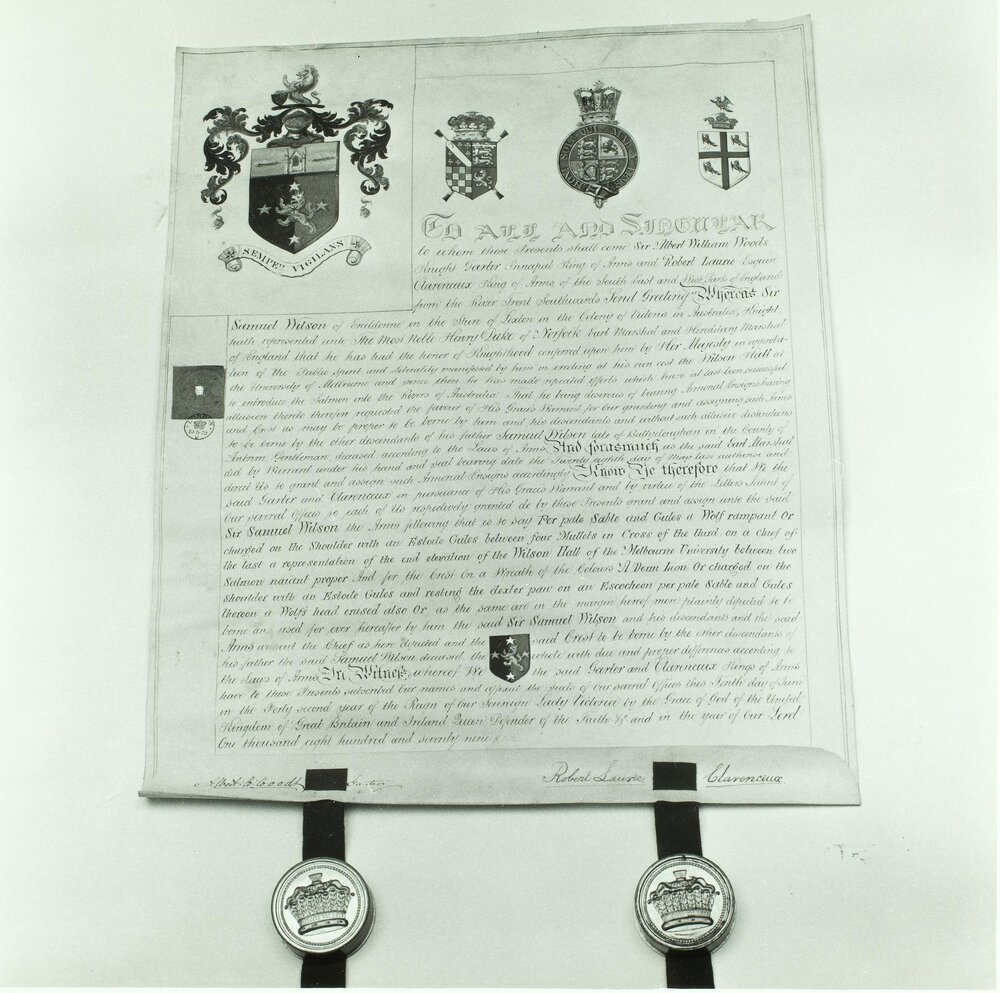 SEMPER VIGILANS
TO ALL AND SINGULAR
to whom these Presents shall come Sir Albert William Woods
Knight Garter Principal King of Arms and Robert Laurie Esquire
Clarenceux King of Arms of the South East and West Parts of England
from the River Trent Southwards Send Greeting Whereas Sir
Samuel Wilson of Ercildoune in the Shire of Lexton in the Colony of Victoria in Australia, Knight
hath represented unto The Most Noble Henry Duke of Norfolk Earl Marshal and Hereditary Marshal
of England that he has had the honor of Knighthood conferred upon him by Her Majesty in approba-
tion of the Public Spirit and liberality manifested by him in erecting at his own cost the Wilson Hall at
the University of Melbourne and since then he has made repeated efforts which have at last been successful
to introduce the Salmon into the Rivers of Australia That he being desirous of bearing Armorial Ensigns having
allusion thereto therefore requested the favour of His Grace's Warrant for Our granting and assigning such Arms
and Crest as may be proper to be borne by him and his descendants and without such allusive distinctions
to be borne by the other descendants of his father Samuel Wilson late of Ballycloughan in the County of
Antrim Gentleman, deceased according to the Laws of Arms And forasmuch as the said Earl Marshal
did by Warrant under his hand and seal bearing date the Twenty eighth day of May last authorise and
direct Us to grant and assign such Armorial Ensigns accordingly Know Ye therefore that We the
said Garter and Clarenceux in pursuance of His Grace's Warrant and by virtue of the Letters Patent of
Our several Offices to each of Us respectively granted do by these Presents grant and assign unto the said
Sir Samuel Wilson the Arms following that is to say Per pale Sable and Gules a Wolf rampant Or
charged on the Shoulder with an Estoile Gules between four Mullets in Cross of the third on a Chief of
the last a representation of the end elevation of the Wilson Hall of the Melbourne University between two
Salmon naiant proper And for the Crest On a Wreath of the Colours A Demi Lion Or charged on the
Shoulder with an Estoile Gules and resting the dexter paw on an Escocheon per pale Sable and Gules
thereon a Wolf's head erased also Or as the same are in the margin hereof more plainly depicted to be
borne and used for ever hereafter by him the said Sir Samuel Wilson and his descendants and the said
Arms without the Chief as here depicted and the said Crest to be borne by the other descendants of
his father the said Samuel Wilson deceased the whole with due and proper differences according to
the Laws of Arms In Witness whereof We the said Garter and Clarenceux Kings of Arms
have to these Presents subscribed Our names and affixed the Seals of Our several Offices this Tenth day of June
in the Forty second year of the Reign of Our Sovereign Lady Victoria by the Grace of God of the United
Kingdom of Great Britain and Ireland Queen Defender of the Faith &c and in the year of Our Lord
One thousand eight hundred and seventy nine
Albert W. Woods Garter
Robert Laurie Clarenceux